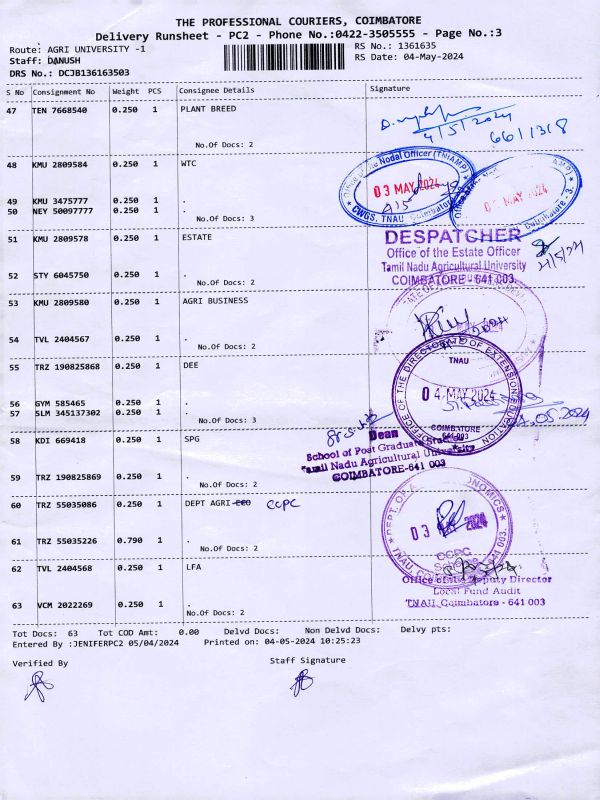 THE PROFESSIONAL COURIERS, COIMBATORE
Delivery Runsheet - PC2 - Phone No.:0422-3505555 - Page No.:3
Route: AGRI UNIVERSITY -1
RS No.: 1361635
Staff: DANUSH
RS Date: 04-May-2024
DRS No.: DCJB136163503
S No Consignment No Weight PCS Consignee Details Signature
47 TEN 7668540 0.250 1 PLANT BREED
4/5/2024
6611318
No.Of Docs: 2
48 KMU 2809584 0.250 1 WTC
Office of the Nodal Officer (TNIAMP)
03 MAY 2024
CWGS, TNAU, Coimbatore
MAY 2024
Coimbatore - 3.
49 KMU 3475777 0.250 1 .
50 NEY 50097777 0.250 1 .
No.Of Docs: 3
51 KMU 2809578 0.250 1 ESTATE
DESPATCHER
Office of the Estate Officer
Tamil Nadu Agricultural University
COIMBATORE - 641 003.
52 STY 6045750 0.250 1 .
No.Of Docs: 2
53 KMU 2809580 0.250 1 AGRI BUSINESS
54 TVL 2404567 0.250 1 .
No.Of Docs: 2
55 TRZ 190825868 0.250 1 DEE
OFFICE OF THE DIRECTORATE OF EXTENSION EDUCATION
TNAU
04 MAY 2024
COIMBATORE
641 003
56 GYM 585465 0.250 1 .
57 SLM 345137302 0.250 1 .
No.Of Docs: 3
58 KDI 669418 0.250 1 SPG
Dean
School of Post Graduate Studies
Tamil Nadu Agricultural University
COIMBATORE-641 003
59 TRZ 190825869 0.250 1 .
No.Of Docs: 2
60 TRZ 55035086 0.250 1 DEPT AGRI ECO CCPC
61 TRZ 55035226 0.790 1 .
No.Of Docs: 2
03 2024
CCPC
62 TVL 2404568 0.250 1 LFA
Office of the Deputy Director
Local Fund Audit
TNAU, Coimbatore - 641 003
63 VCM 2022269 0.250 1 .
No.Of Docs: 2
Tot Docs: 63 Tot COD Amt: 0.00 Delvd Docs: Non Delvd Docs: Delvy pts:
Entered By :JENIFERPC2 05/04/2024 Printed on: 04-05-2024 10:25:23
Verified By
Staff Signature